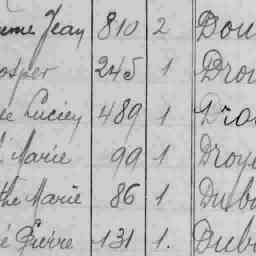 Jean 810 2 Dou
osper 245 1 Drou
Lucien 489 1 Dro
Marie 99 1 Droye
the Marie 86 1 Dub
é Pierre 131 1. Dub